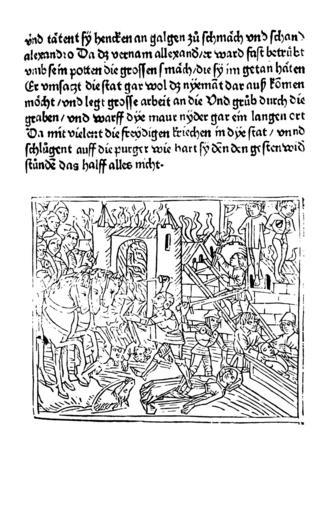 vnd tǎtent sy hencken an galgen zů schmach vnd schand
alexandro Da dz vernam allexander ward fast betrůbt
vmb sein potten die grossen smach/die sy im getan hǎten
Er vmsaczt die stat gar wol dz nyemāt dar auß kōmen
mǒcht/vnd legt grosse arbeit an die Vnd grůb durch die
graben/vnd warff dye maur nyder gar ein langen ort
Da mit vielent die freydigen kriechen in dye stat/vnnd
schlůgent auff die purger wie hart sy den den gesten wid
stůnde das halff alles nicht.